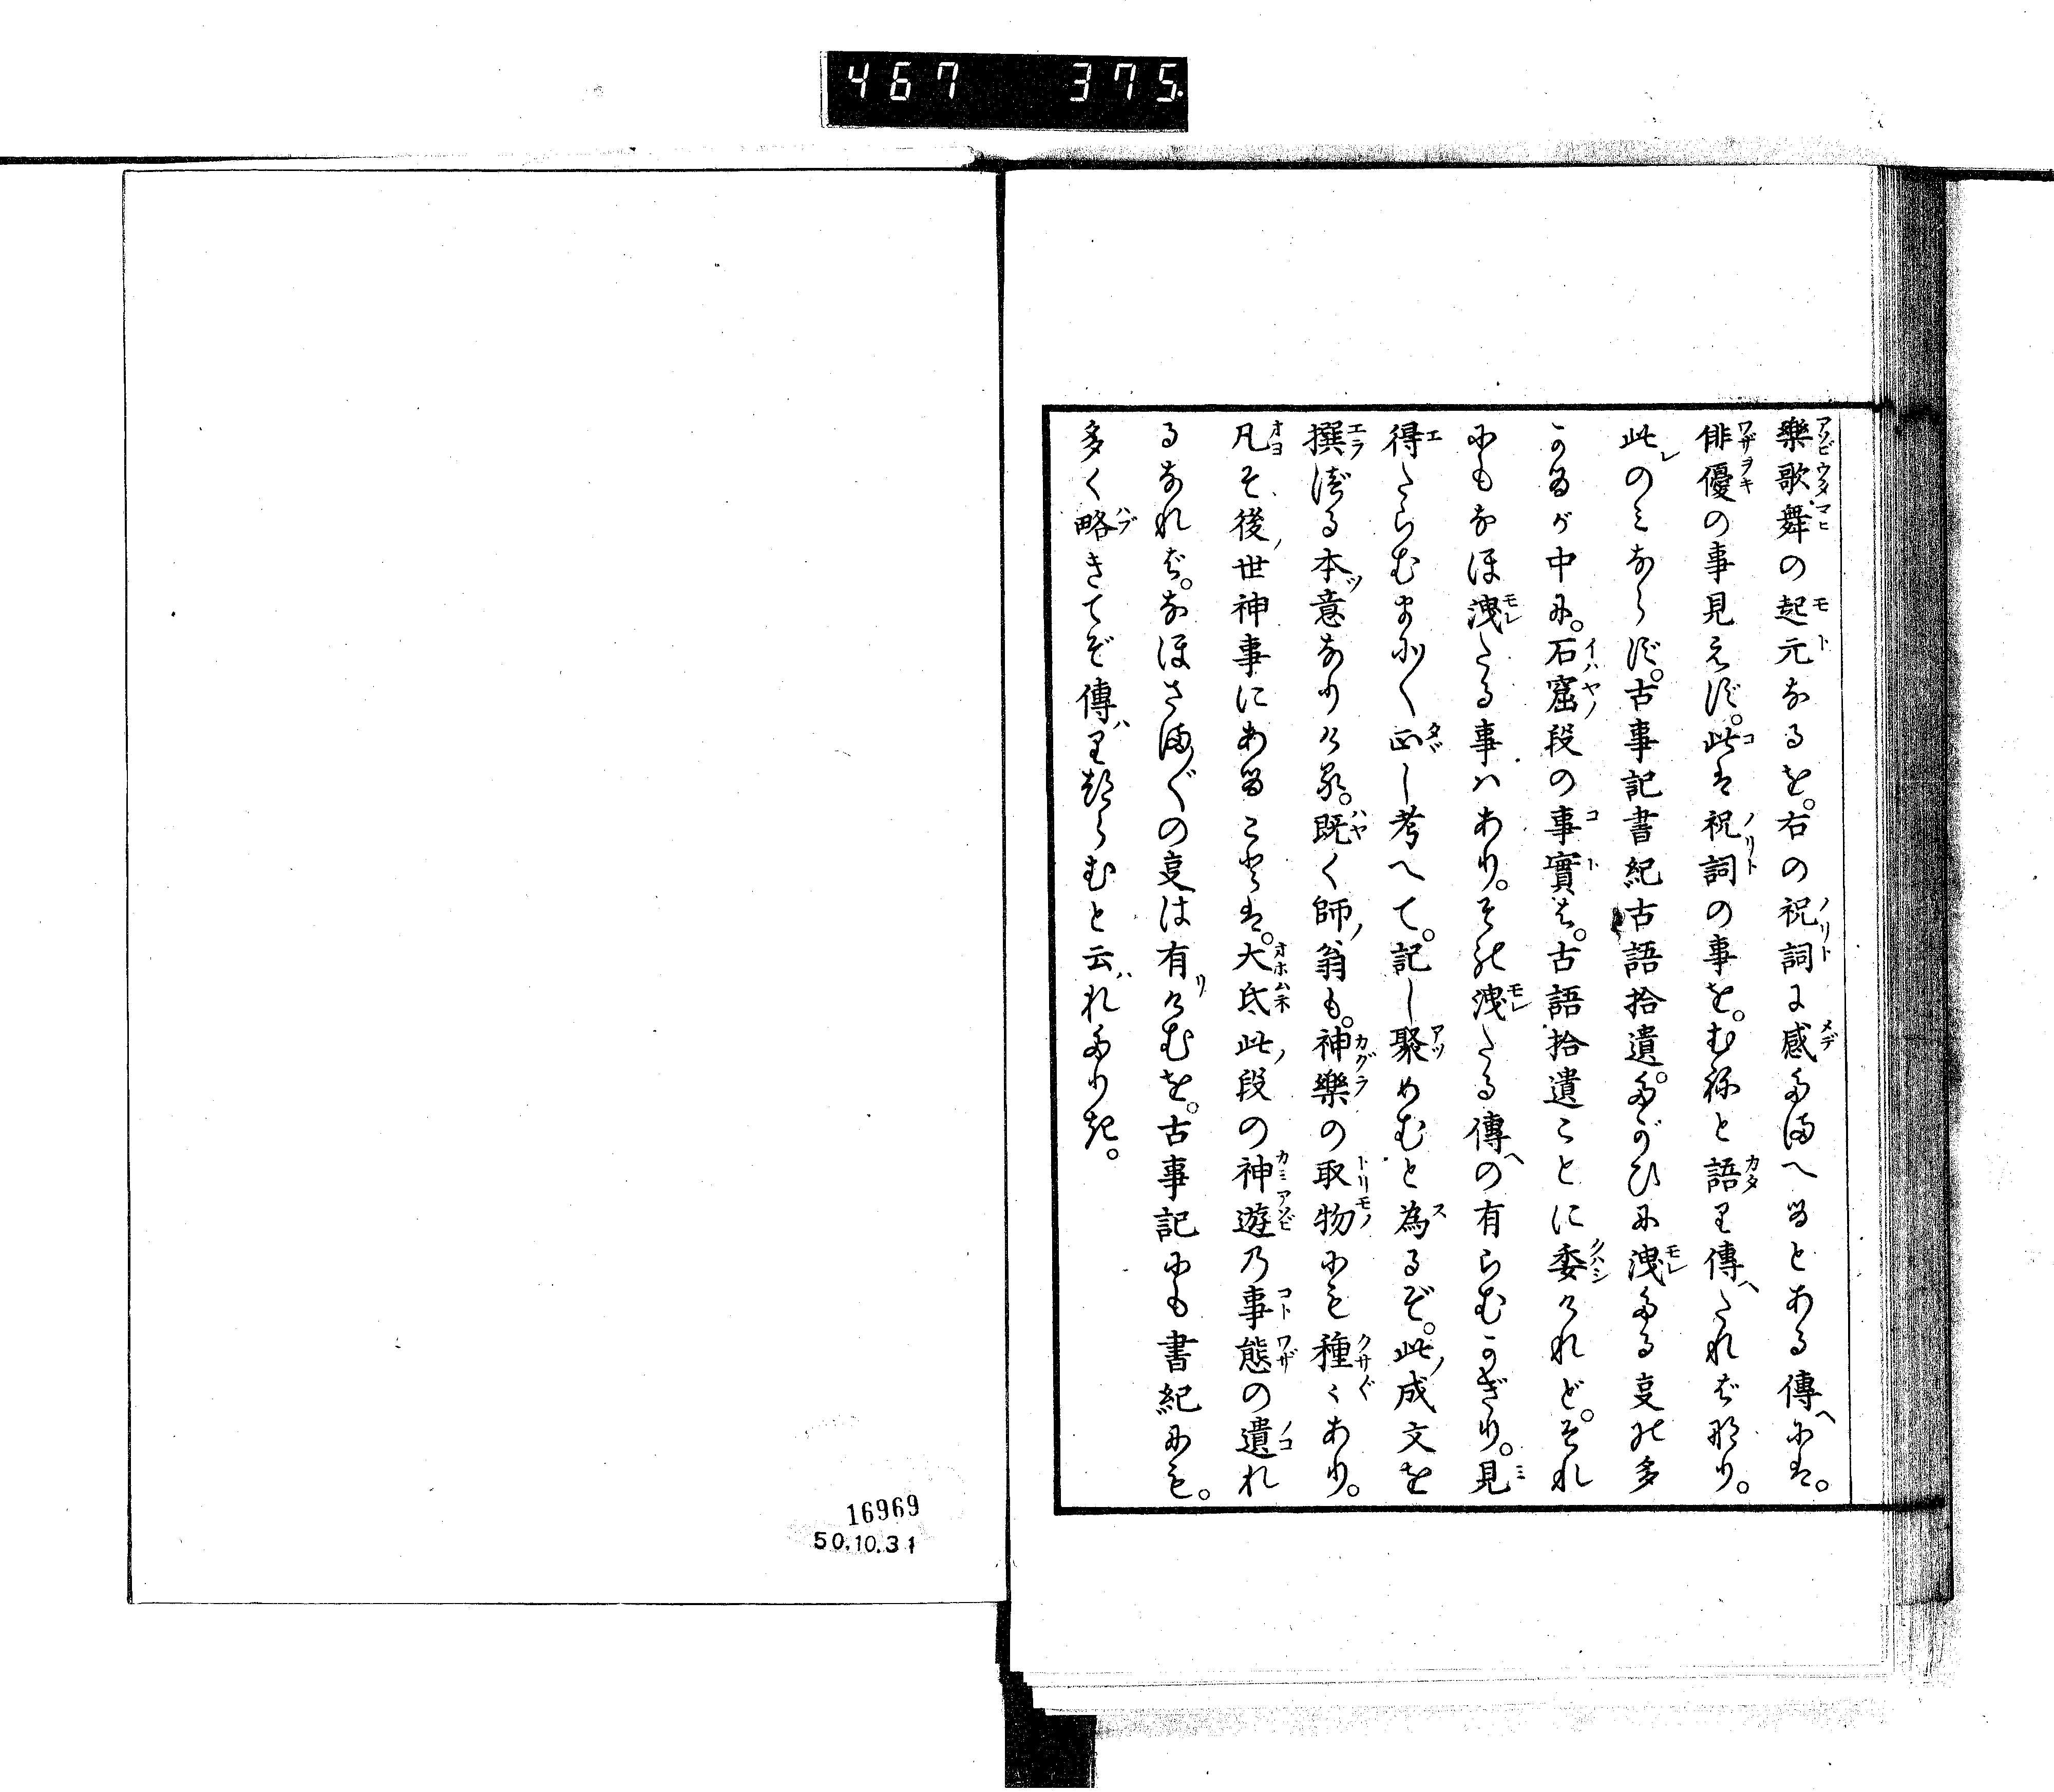 467 375
樂歌舞の起元なるを。右の祝詞に感たまへるとある傳へには。
俳優の事見えず。此は祝詞の事を。むねと語り傳へたればなり。
此レのみならず。古事記書紀古語拾遺。たがひに洩たる事の多
かるが中に。石窟段の事實は。古語拾遺ことに委けれど。それ
にもなほ洩たる事はあり。その洩たる傳への有らむかぎり。見
得たらむまに〱正し考へて。記し聚めむと為るぞ。此ノ成文を
撰べる本意なりける。既く師ノ翁も。神樂の取物にも種〻あり。
凡そ後ノ世神事にあることは。大氐此ノ段の神遊乃事態の遺れ
るなれば。なほさま〲の事は有りけむを。古事記にも書紀にも。
多く略きてぞ傳ハりつらむと云ハれたりき。
16969
50.10.31